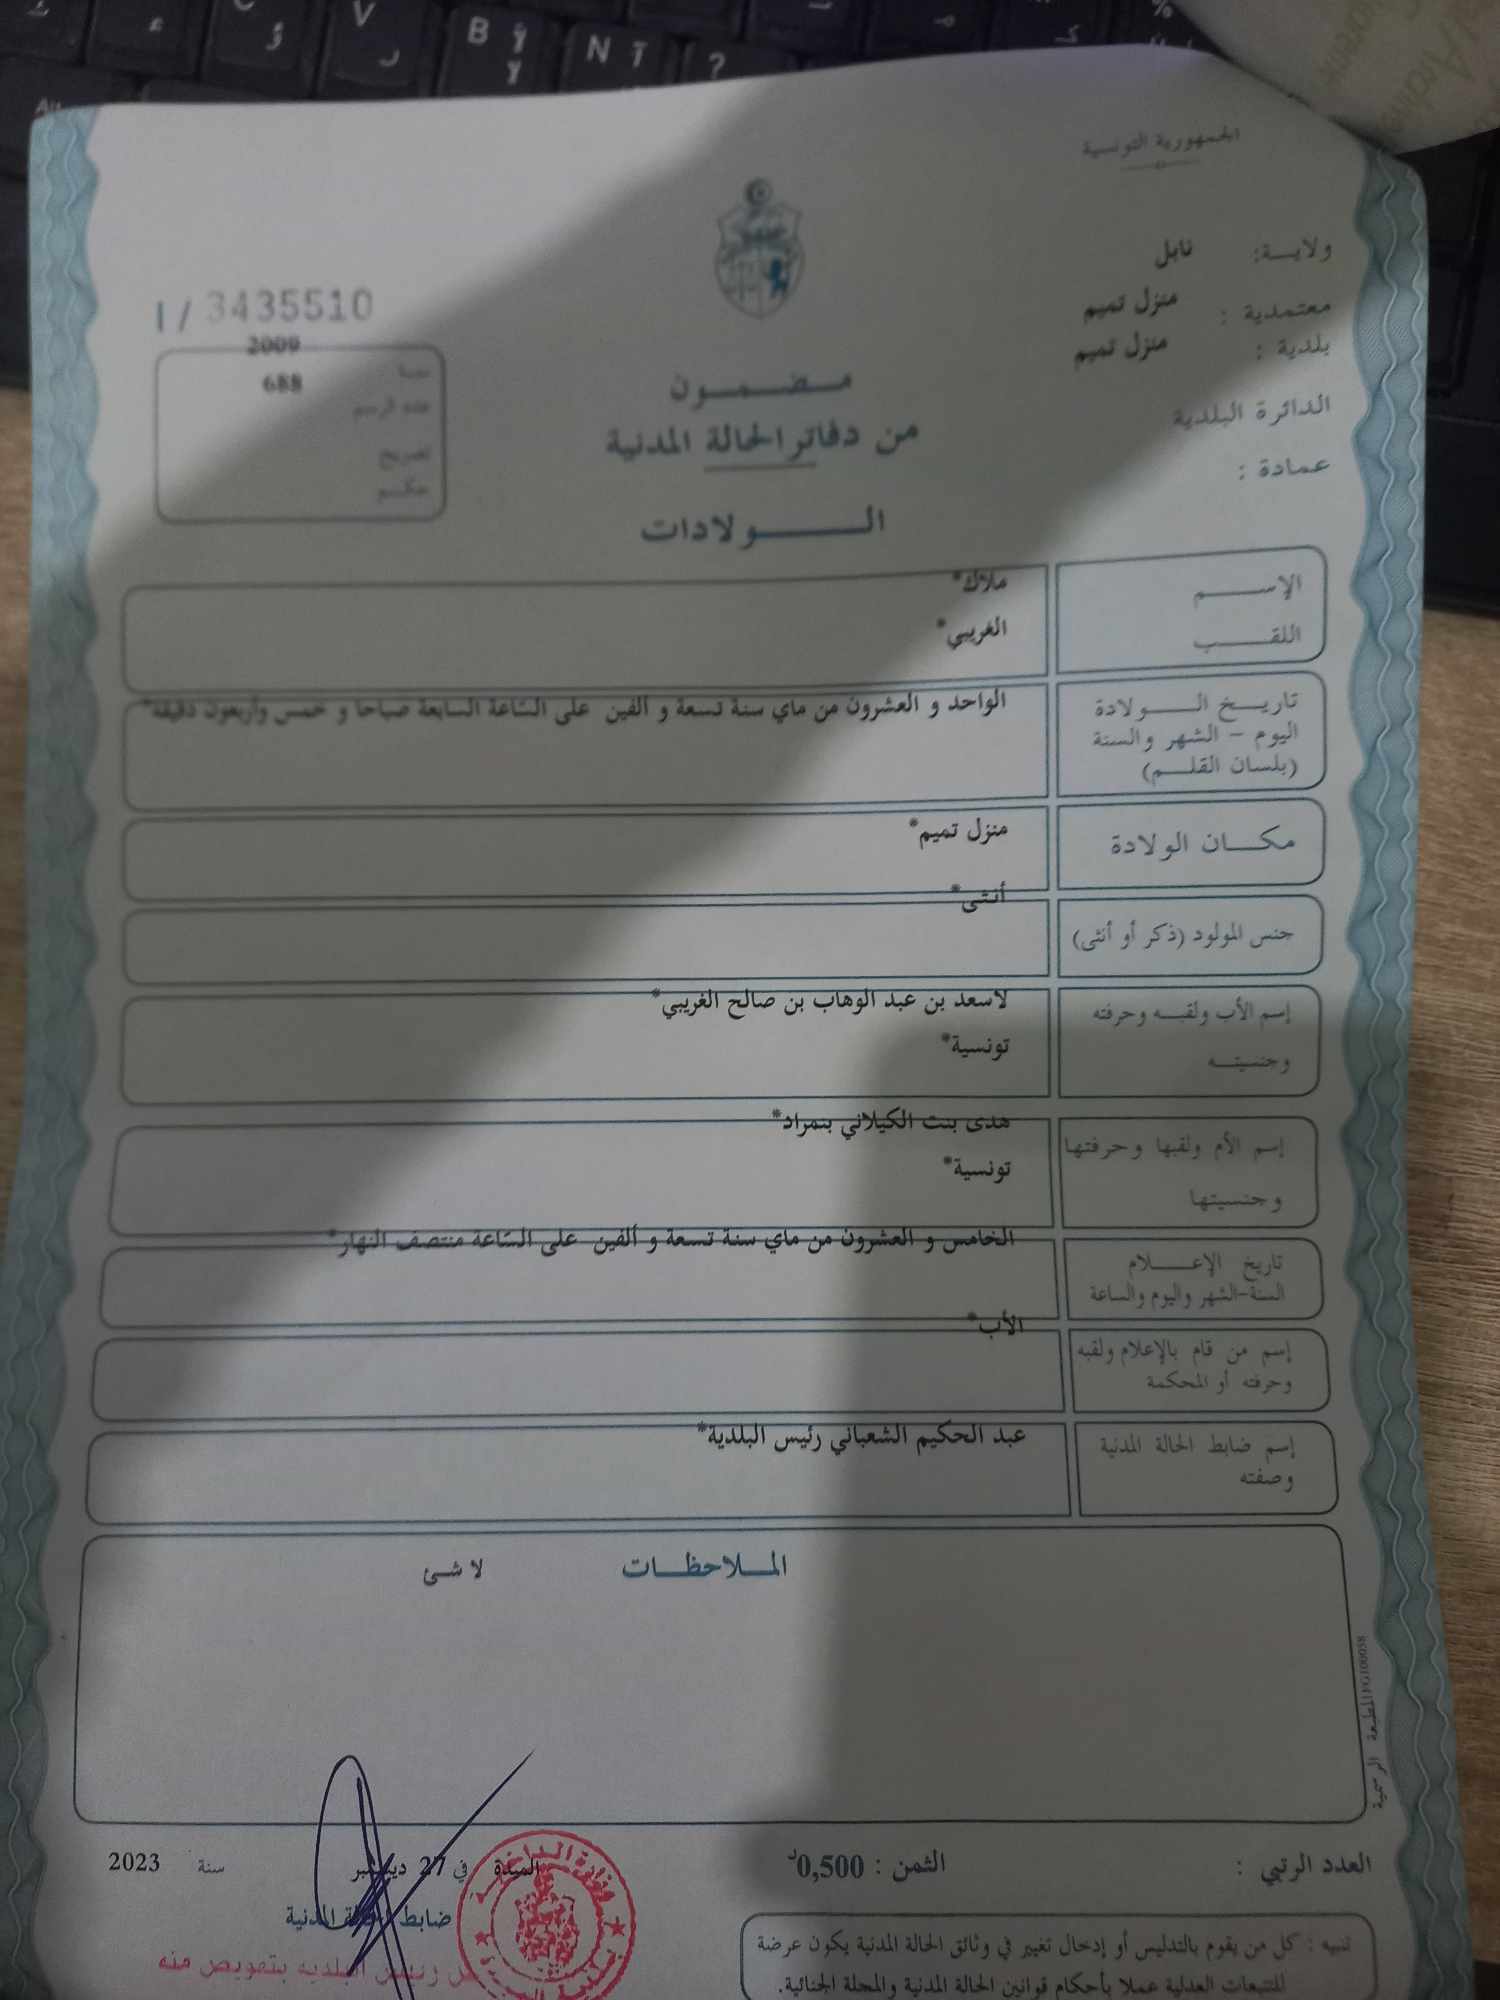 الجمهورية التونسية
ولايـــة: نابل
معتمدية : منزل تميم
بلدية : منزل تميم
الدائرة البلدية
عمادة :
I / 3435510
2009
سنة
688
عدد الرسم
تصريح
حكـــم
مــضــمــون
من دفاتر الحالة المدنية
الـــولادات
الإســـــم ملاك*
اللقـــــب الغريبي*
تاريـــخ الـــــولادة الواحد و العشرون من ماي سنة تسعة و ألفين على السّاعة السابعة صباحا و خمس وأربعون دقيقة*
اليوم – الشهر والسنة
(بلسان القلـــم)
مكـــان الولادة منزل تميم*
جنس المولود (ذكر أو أنثى) أنثى*
إسم الأب ولقبـــه وحرفته لاسعد بن عبد الوهاب بن صالح الغريبي*
وجنسيتـــه تونسية*
إسم الأم ولقبها وحرفتها هدى بنت الكيلاني بنمراد*
وجنسيتها تونسية*
تاريخ الإعـــــلام الخامس و العشرون من ماي سنة تسعة و ألفين على السّاعة منتصف النهار*
السنة-الشهر واليوم والساعة
إسم من قام بالإعلام ولقبه الأب*
وحرفته أو المحكمة
إسم ضابط الحالة المدنية عبد الحكيم الشعباني رئيس البلدية*
وصفته
الملاحظـــات لا شئ
المطبعة الرسمية
العدد الرتبي : الثمن : 0,500د
في 27 ديسمبر سنة 2023
ضابط الحالة المدنية
رئيس البلدية بتفويض منه
تنبيه : كل من يقوم بالتدليس أو إدخال تغيير في وثائق الحالة المدنية يكون عرضة
للتتبعات العدلية عملا بأحكام قوانين الحالة المدنية والمجلة الجنائية.